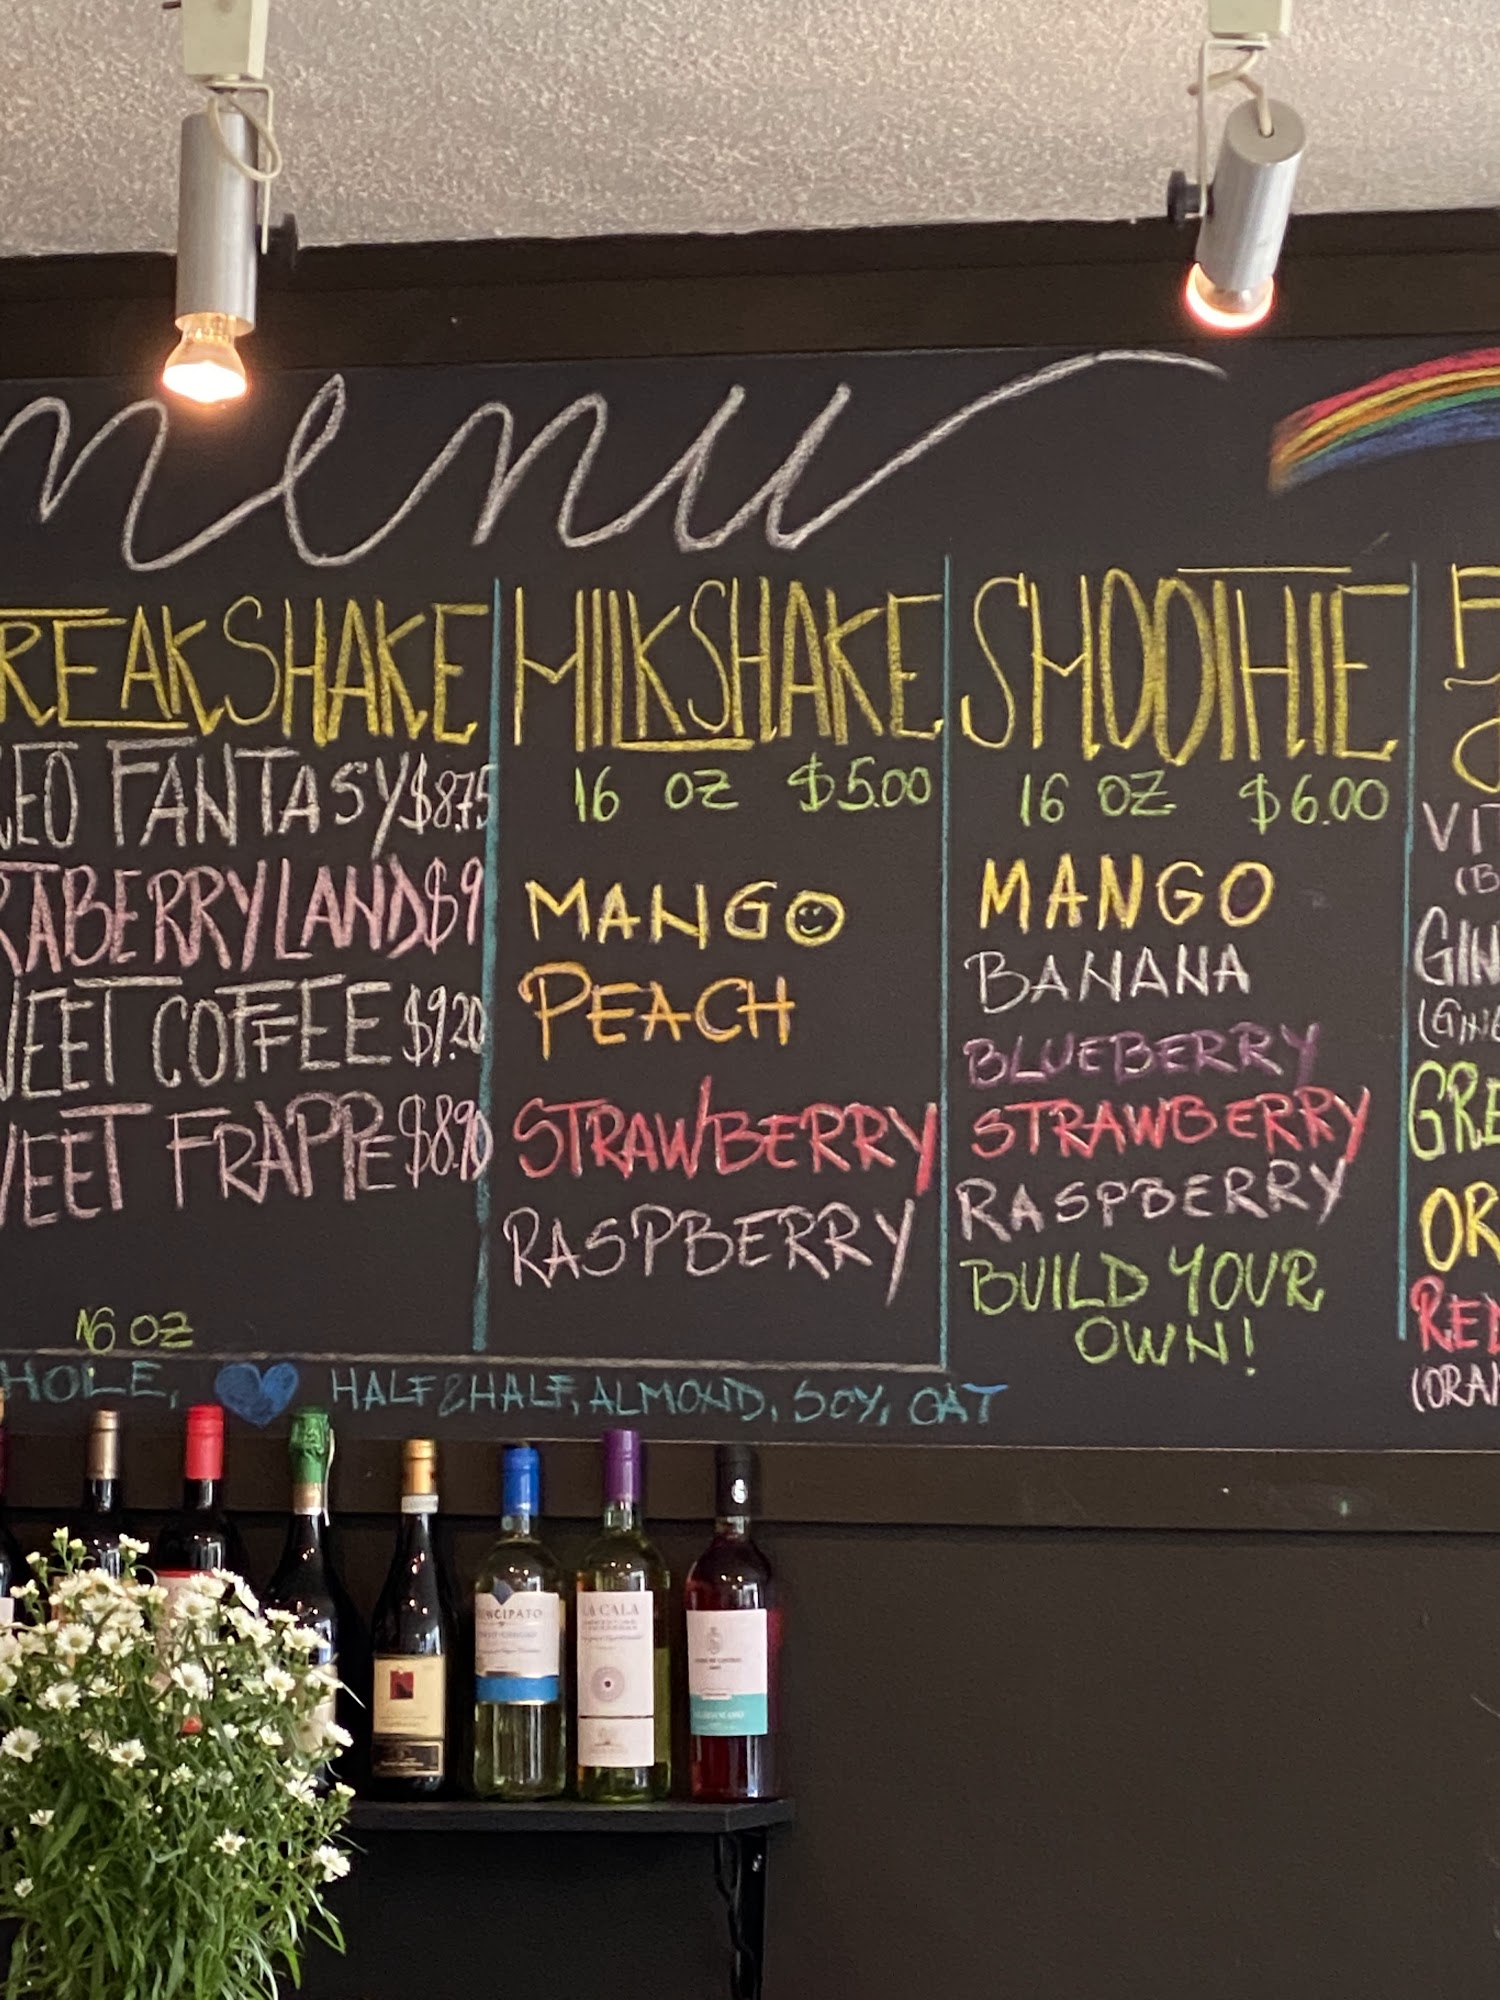 menu
REAKSHAKE
REO FANTASY $8.75
RABERRYLAND $9
WEET COFFEE $9.20
WEET FRAPPE $8.90
16 OZ
MILKSHAKE
16 OZ $5.00
MANGO
PEACH
STRAWBERRY
RASPBERRY
SMOOTHIE
16 OZ $6.00
MANGO
BANANA
BLUEBERRY
STRAWBERRY
RASPBERRY
BUILD YOUR
OWN!
VIT
(B
GIN
(GING
GRE
OR
RED
(ORAN
HOLE, HALF&HALF, ALMOND, SOY, OAT
NCIPATO
LA CALA